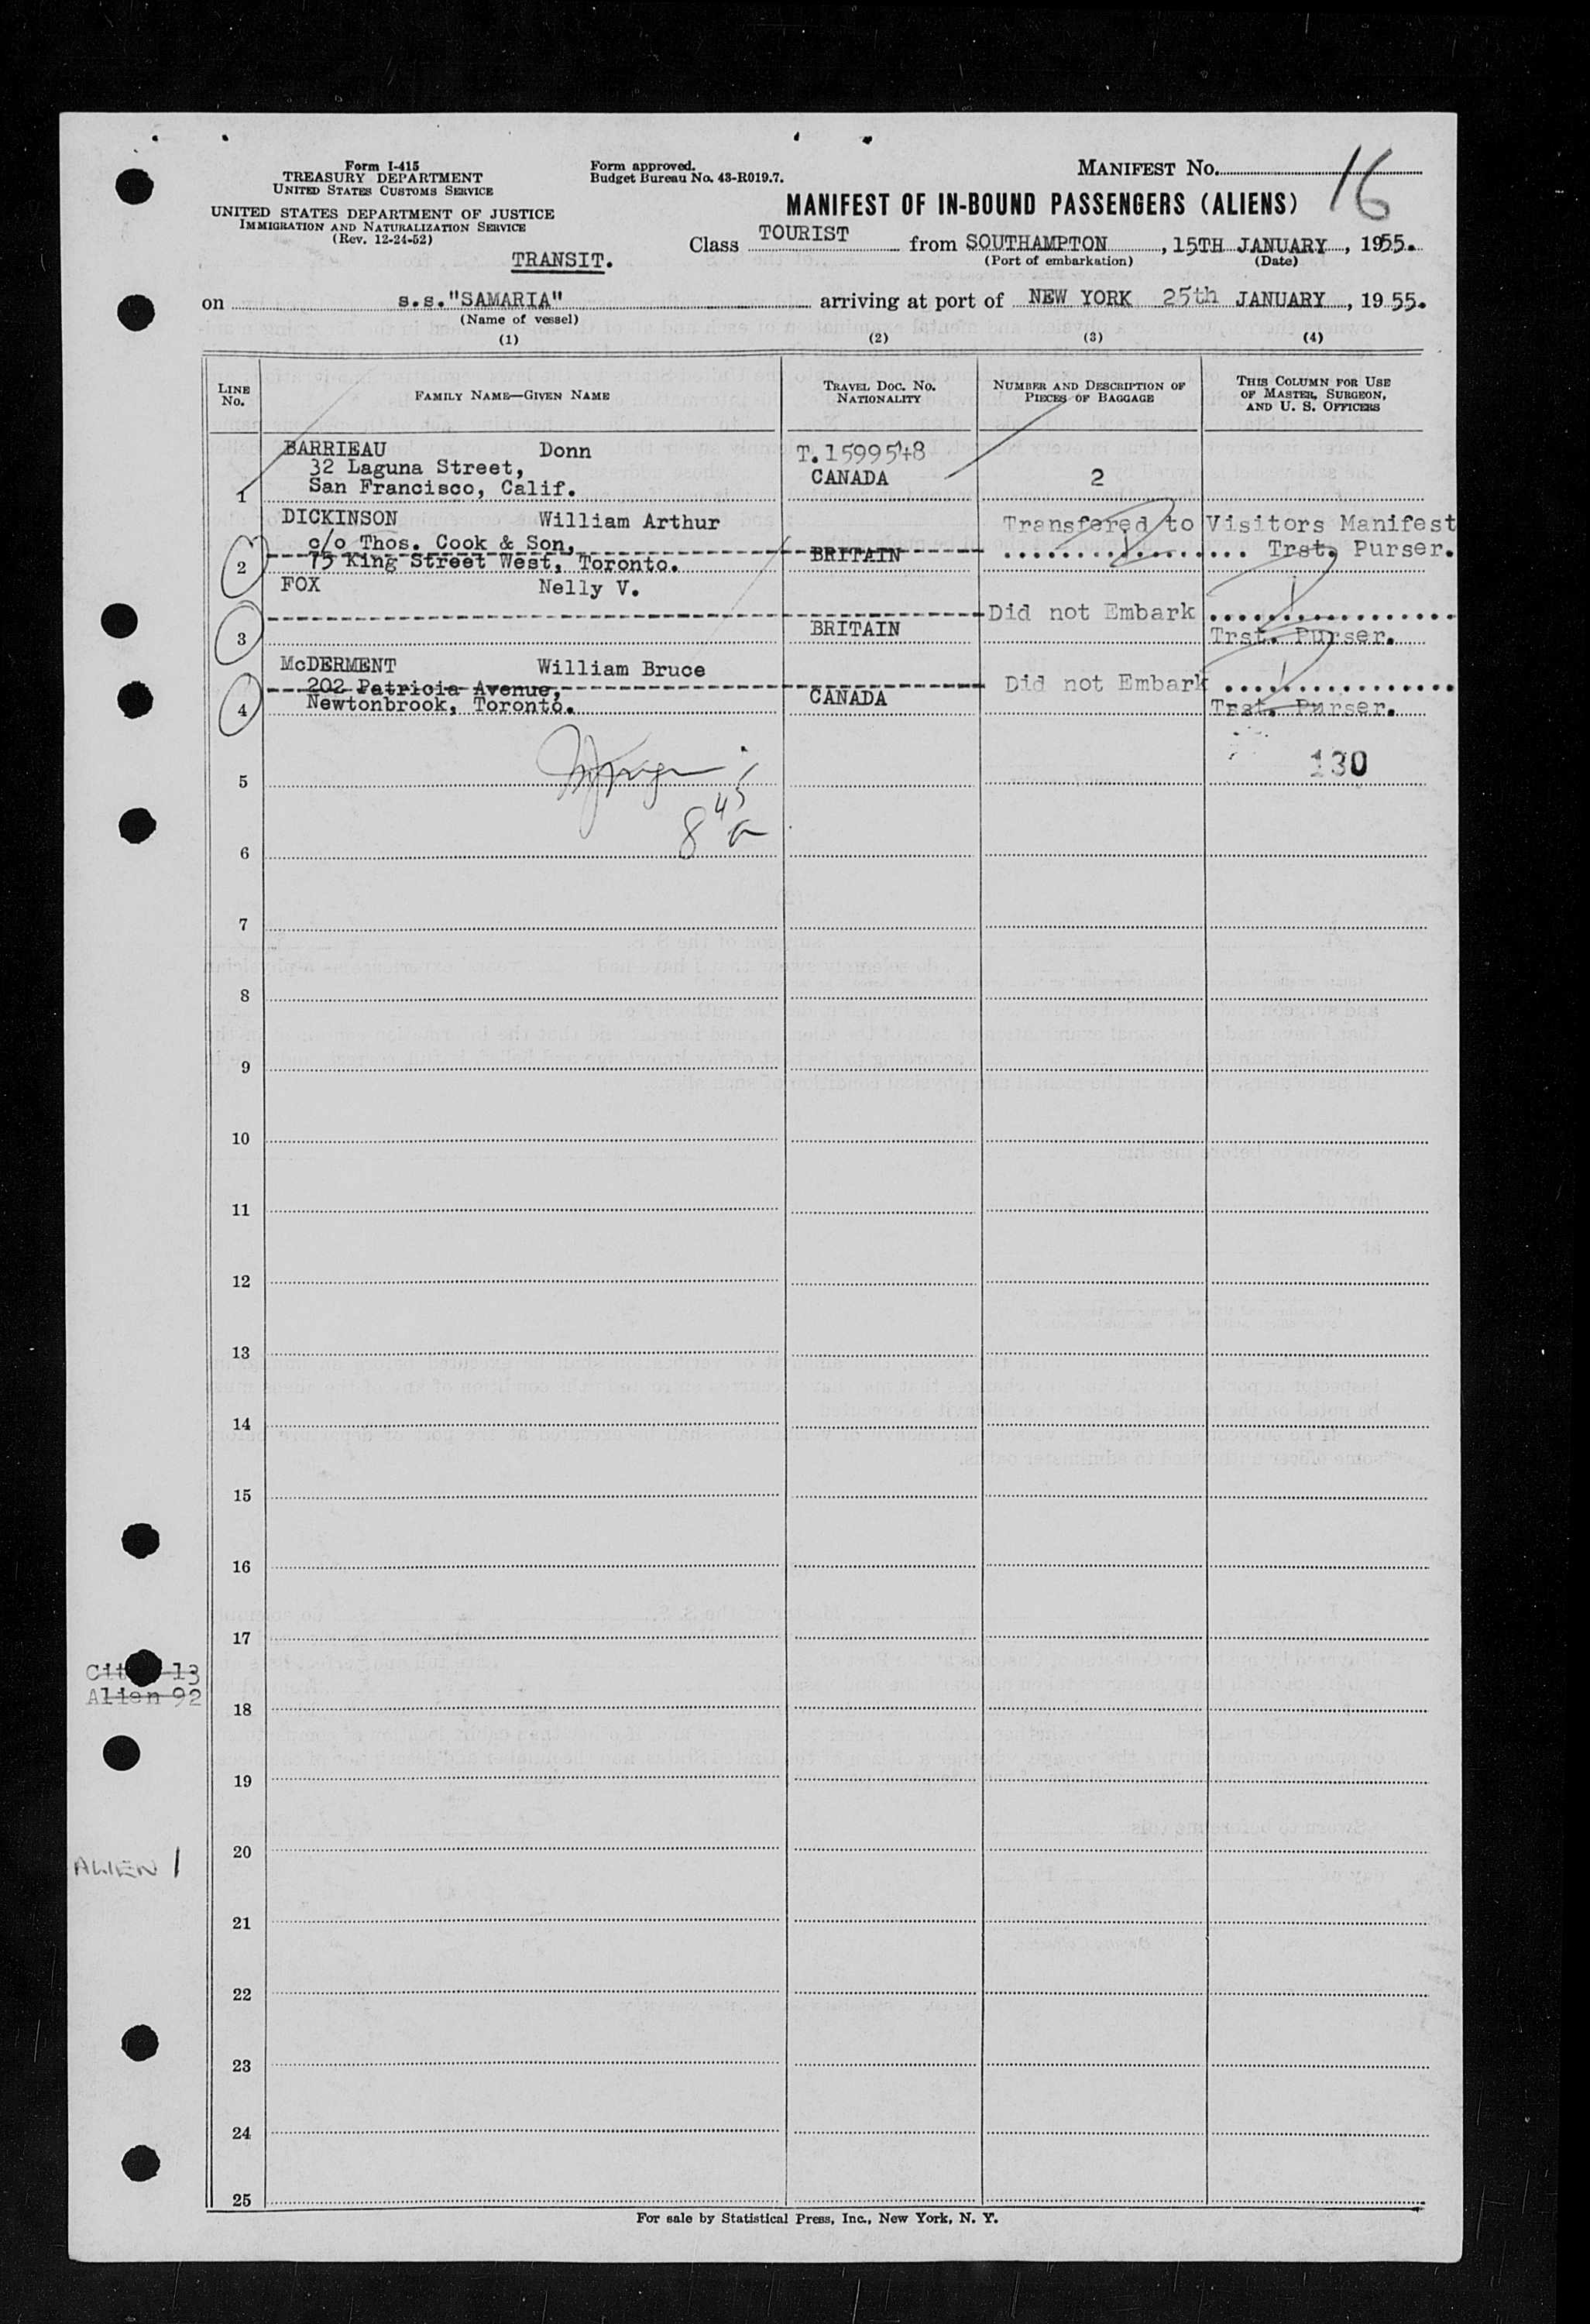 Form I-415
TREASURY DEPARTMENT
UNITED STATES CUSTOMS SERVICE
UNITED STATES DEPARTMENT OF JUSTICE
IMMIGRATION AND NATURALIZATION SERVICE
(Rev. 12-24-52)
Form approved.
Budget Bureau No. 43-R019.7.
MANIFEST No. 16
MANIFEST OF IN-BOUND PASSENGERS (ALIENS)
Class TOURIST from SOUTHAMPTON, 15TH JANUARY, 1955.
(Port of embarkation) (Date)
TRANSIT.
on s.s."SAMARIA" arriving at port of NEW YORK 25th JANUARY, 1955.
(Name of vessel)
(1) (2) (3) (4)
LINE No. FAMILY NAME—GIVEN NAME TRAVEL DOC. No. NATIONALITY NUMBER AND DESCRIPTION OF PIECES OF BAGGAGE THIS COLUMN FOR USE OF MASTER, SURGEON, AND U. S. OFFICERS
BARRIEAU Donn T.1599548
32 Laguna Street, CANADA 2
1 San Francisco, Calif.
DICKINSON William Arthur Transfered to Visitors Manifest
c/o Thos. Cook & Son, BRITAIN ................ Trst. Purser.
2 75 King Street West, Toronto.
FOX Nelly V.
Did not Embark ................
3 BRITAIN Trst. Purser.
McDERMENT William Bruce
202 Patricia Avenue, CANADA Did not Embark ................
4 Newtonbrook, Toronto. Trst. Purser.
5 130
8 45 a
6
7
8
9
10
11
12
13
14
15
16
17
Cit 13
Alien 92
18
19
20
ALIEN 1
21
22
23
24
25
For sale by Statistical Press, Inc., New York, N. Y.